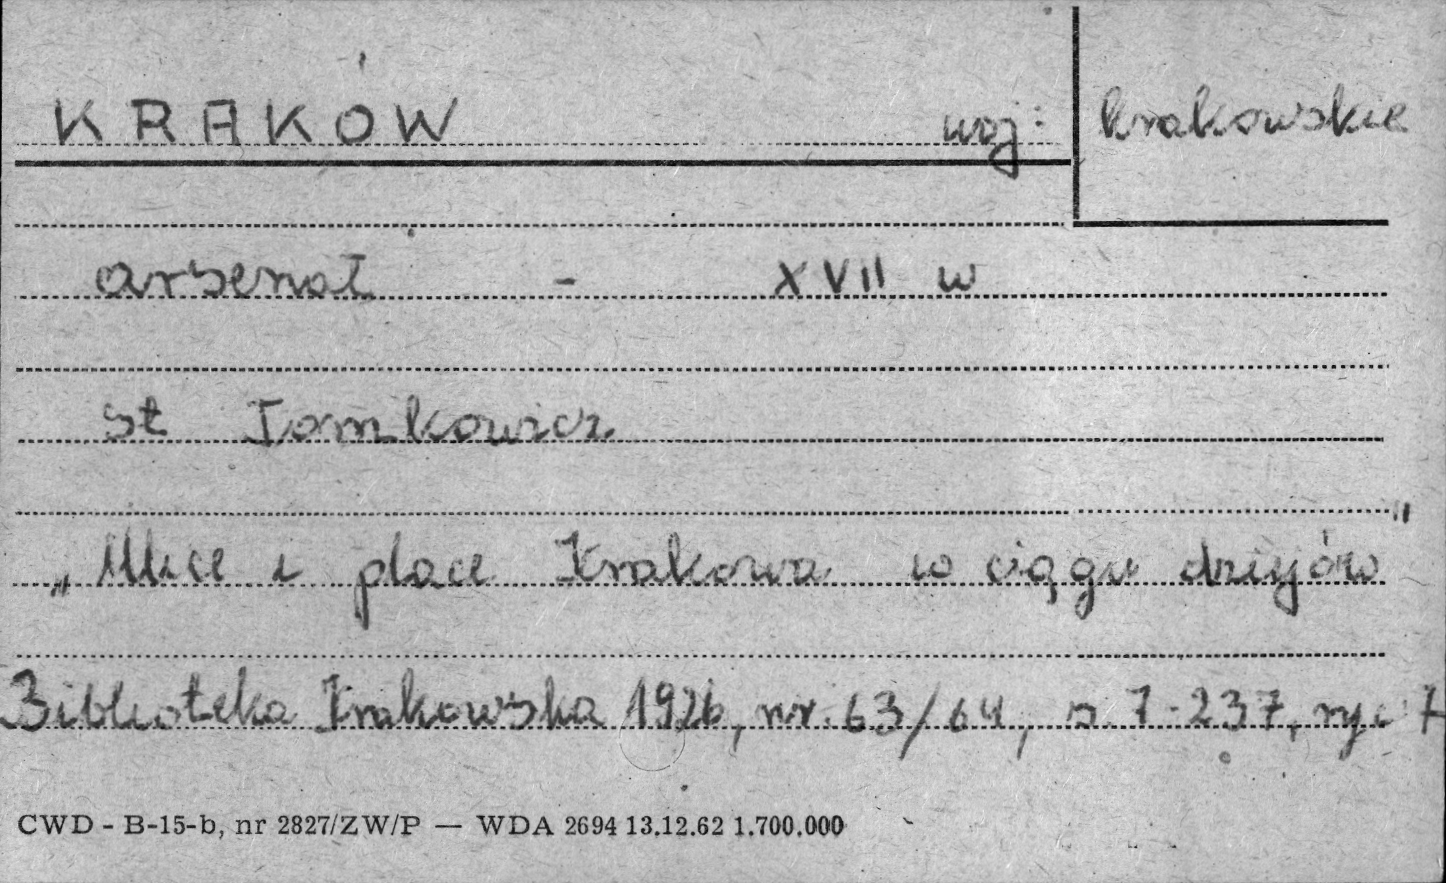 KRAKÓW woj: krakowskie
arsenał - XVII w
St Tomkowicz
„Ulice i place Krakowa w ciągu dziejów"
Biblioteka Krakowska 1926, nr. 63/64, s. 7-237, ryc 7
CWD - B-15-b, nr 2827/ZW/P — WDA 2694 13.12.62 1.700.000